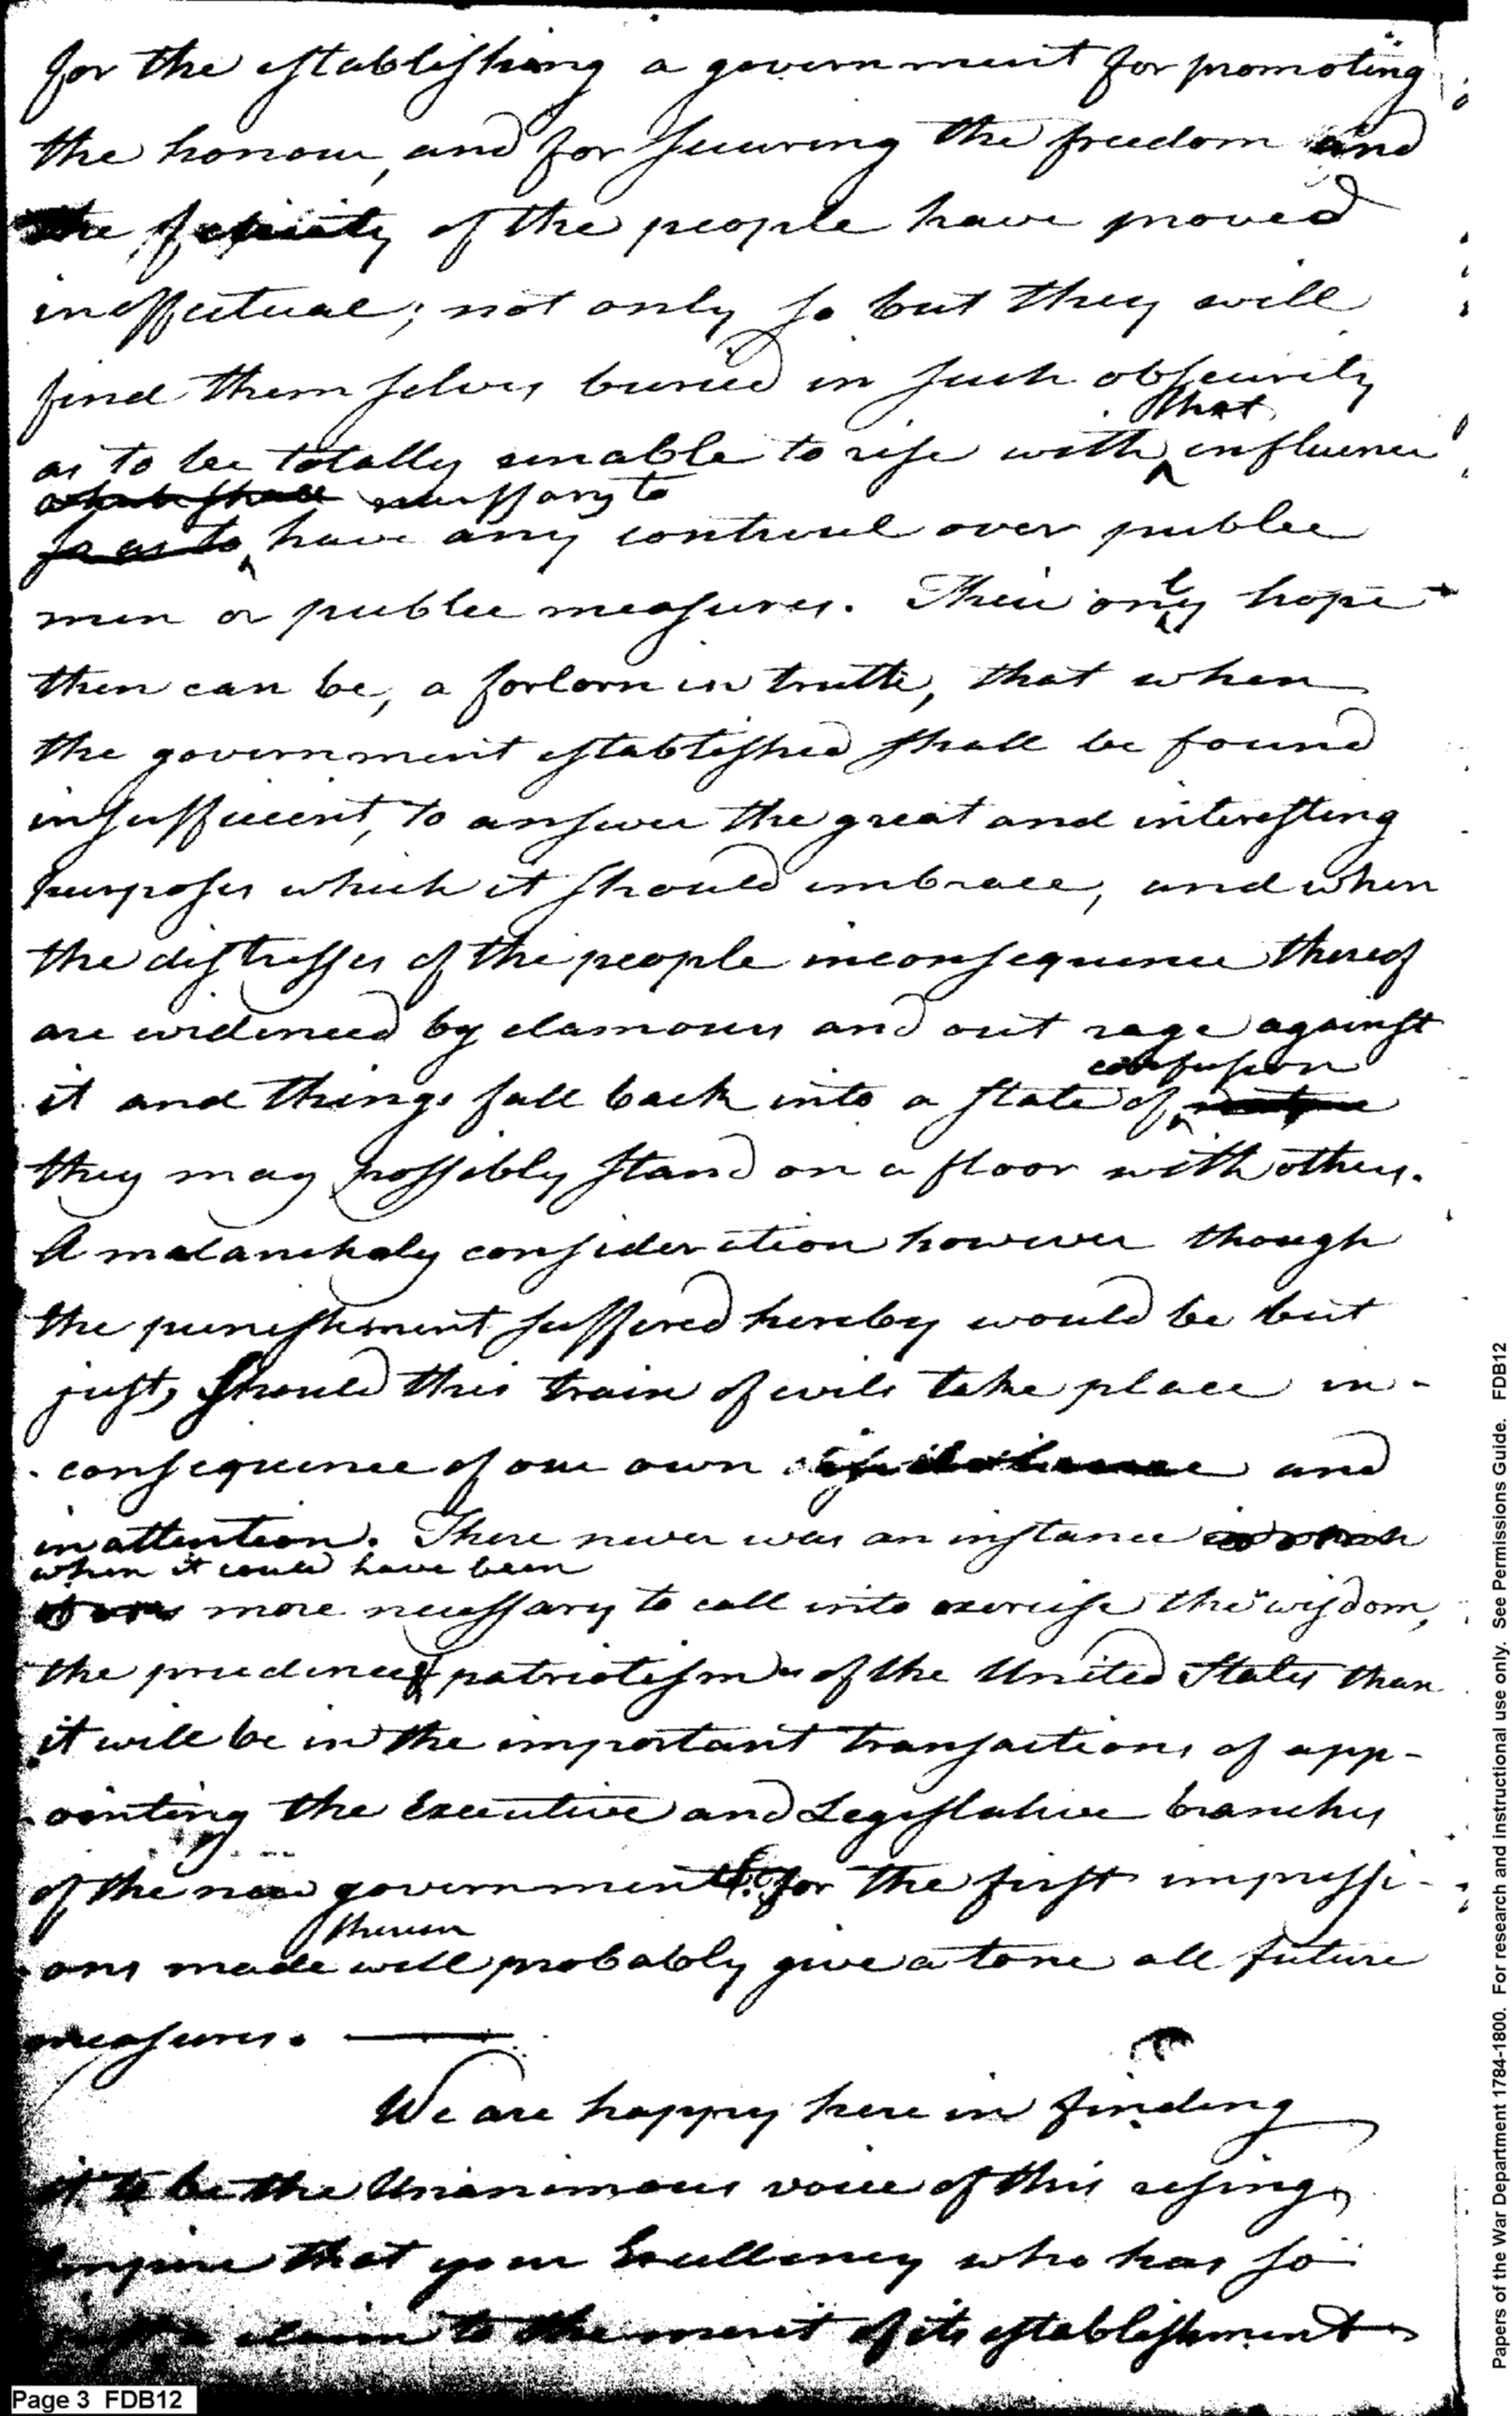 for the establishing a government for promoting
the honour, and for securing the freedom and
the felicity of the people have proved
ineffectual; not only so but they will
find themselves buried in such obscurity
that
as to be totally unable to rise with influence
what shall necessary to
so as to have any controul over publee
men or publee measures. Their only hope
then can be, a forlorn in truth, that when
the government established shall be found
insufficient, to answer the great and interesting
purposes which it should embrace, and when
the distresses of the people inconsequence thereof
are evidenced by clamours and out rage against
confusion
it and things fall back into a state of nature
they may possibly stand on a floor with others.
A malancholy consideration however though
the punishment suffered hereby would be but
just, should this train of evils take place in-
consequence of our own and
inattention. There never was an instance in which
when it could have been
it was more necessary to call into exercise the wisdom,
the prudence & patriotism of the United States than
it will be in the important transactions of app-
ointing the Executive and Legislative branches
of the new government for the first impressi-
therein
ons made will probably give a tone all future
measures.
We are happy here in finding
it to be the Unanimous voice of this rising
empire that your Excellency who has so
just a claim to the merit of its establishment
Page 3 FDB12
Papers of the War Department 1784-1800. For research and instructional use only. See Permissions Guide. FDB12